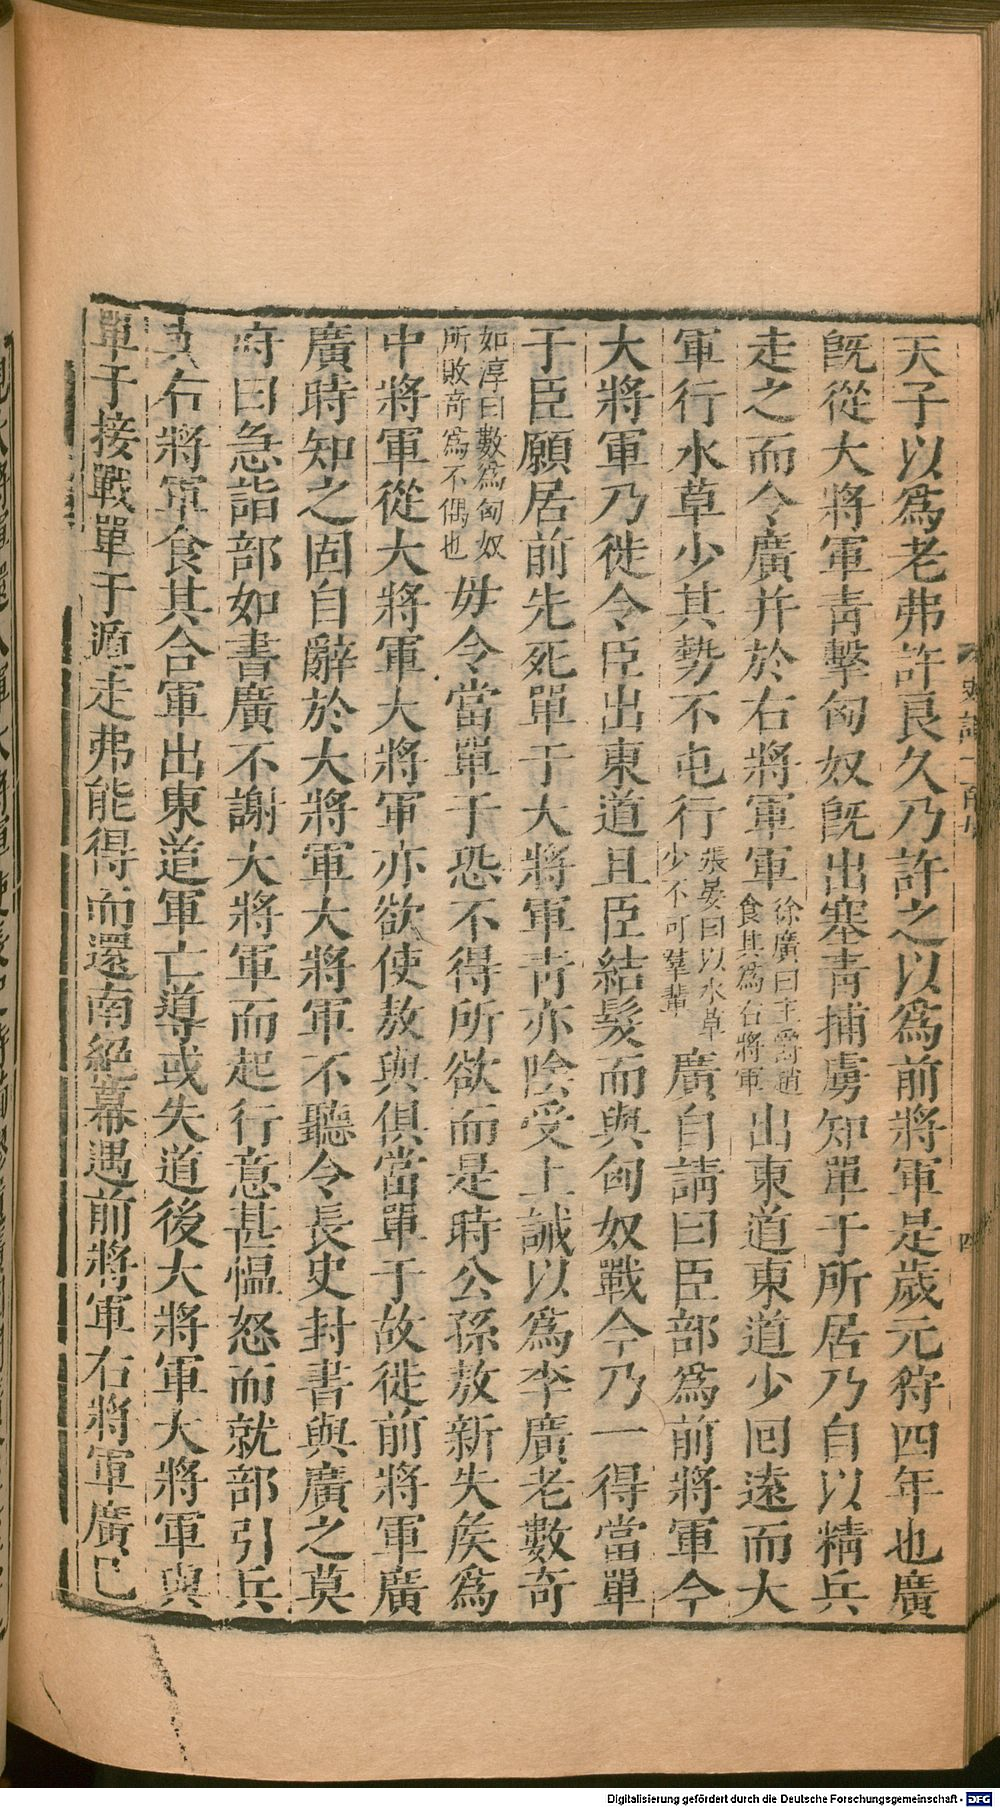 天子以爲老弗許良久乃許之以爲前將軍是歲元狩四年也廣
旣從大將軍靑擊匈奴旣出塞靑捕虜知單于所居乃自以精兵
走之而令廣并於右將軍軍徐廣曰主爵趙食其爲右將軍出東道東道少回遠而大
軍行水草少其勢不屯行張晏曰以水草少不可羣輩廣自請曰臣部爲前將軍今
大將軍乃徙令臣出東道且臣結髮而與匈奴戰今乃一得當單
于臣願居前先死單于大將軍靑亦陰受上誡以爲李廣老數奇
如淳曰數爲匈奴所敗奇爲不偶也毋令當單于恐不得所欲而是時公孫敖新失矦爲
中將軍從大將軍大將軍亦欲使敖與俱當單于故徙前將軍廣
廣時知之固自辭於大將軍大將軍不聽令長史封書與廣之莫
府曰急詣部如書廣不謝大將軍而起行意甚慍怒而就部引兵
與右將軍食其合軍出東道軍亡導或失道後大將軍大將軍與
單于接戰單于遁走弗能得而還南絕幕遇前將軍右將軍廣已
Digitalisierung gefördert durch die Deutsche Forschungsgemeinschaft - DFG